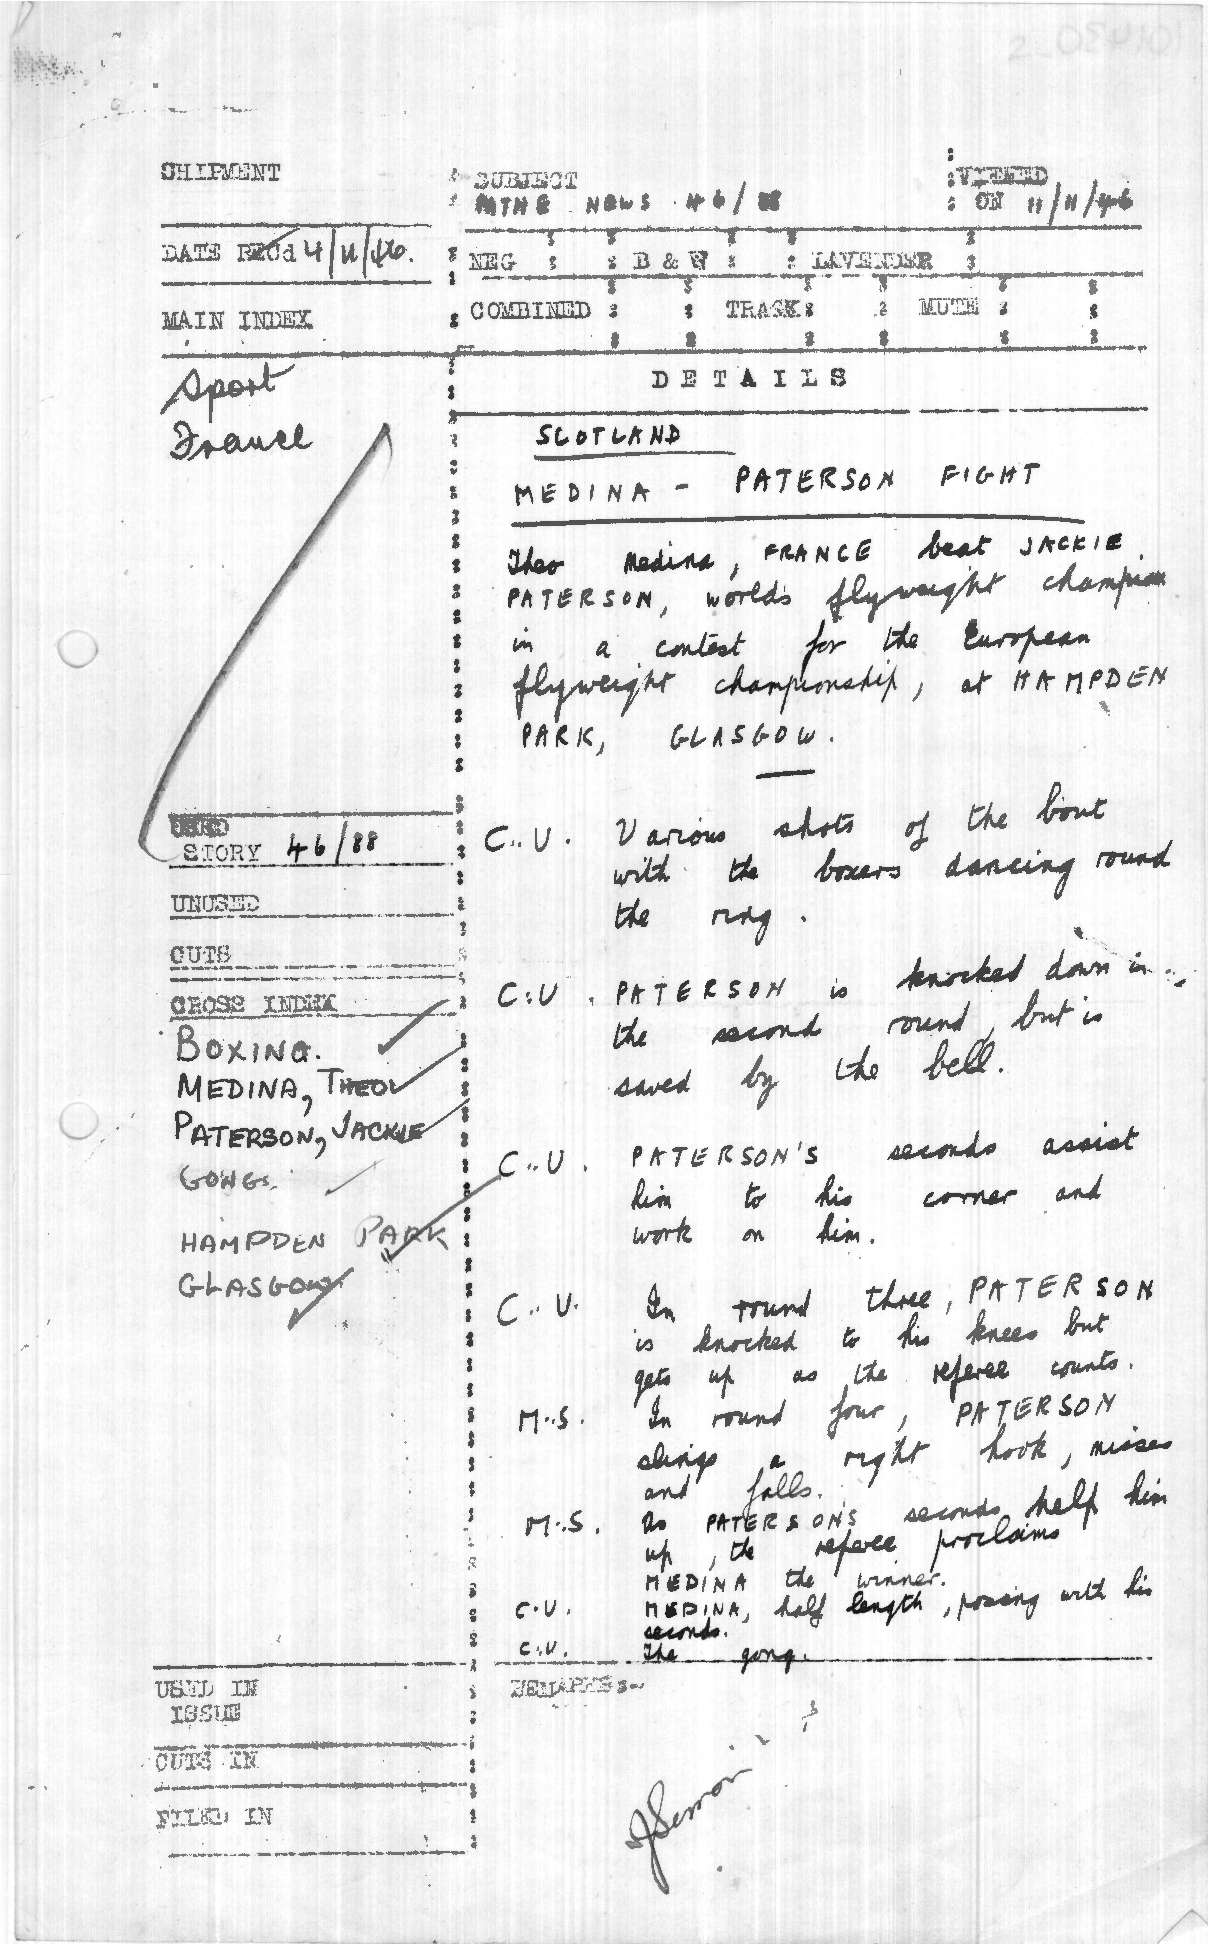 SHIPMENT
SUBJECT
MTNE NEWS 46/88
VIEWED
ON 11/11/46
DATE RECd 4/11/46.
NEG : : B & W : : LAVENDER :
MAIN INDEX
COMBINED : : TRACK : : MUTE : :
DETAILS
Sport
France
SCOTLAND
MEDINA - PATERSON FIGHT
Theo Medina, FRANCE beat JACKIE
PATERSON, worlds flyweight champion
in a contest for the European
flyweight championship, at HAMPDEN
PARK, GLASGOW.
USED
STORY 46/88
UNUSED
CUTS
CROSS INDEX
BOXING.
MEDINA, THEO
PATERSON, JACKIE
GONGS.
HAMPDEN PARK
GLASGOW
C.U. Various shots of the bout
with the boxers dancing round
the ring.
C.U. PATERSON is knocked down in
the second round, but is
saved by the bell.
C.U. PATERSON'S seconds assist
him to his corner and
work on him.
C.U. In round three, PATERSON
is knocked to his knees but
gets up as the referee counts.
M.S. In round four, PATERSON
slings a right hook, misses
and falls.
M.S. As PATERSON'S seconds help him
up, the referee proclaims
MEDINA the winner.
C.U. MEDINA, half length, posing with his
seconds.
C.U. The gong.
USED IN
ISSUE
REMARKS:-
CUTS IN
FILED IN